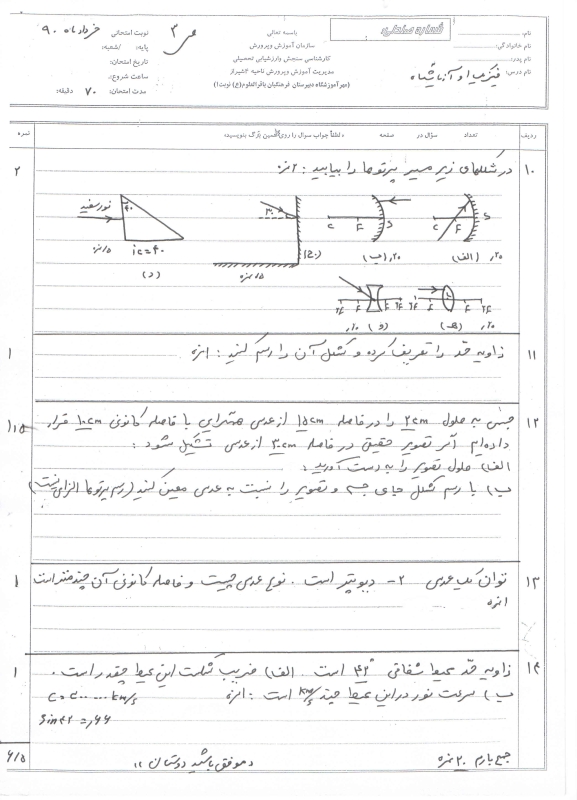 شماره صندلی:
نام:
نام خانوادگی:
نام پدر:
نام درس: فیزیک ۱ و آزمایشگاه
باسمه تعالی
سازمان آموزش وپرورش
کارشناسی سنجش وارزشیابی تحصیلی
مدیریت آموزش وپرورش ناحیه ۳شیراز
(مهرآموزشگاه دبیرستان فرهنگیان باقرالعلوم(ع) نوبت۱)
نوبت امتحانی خرداد ماه ۹۰
ص ۳
پایه: /شعبه:
تاریخ امتحان:
ساعت شروع:
مدت امتحان: ۷۰ دقیقه:
ردیف تعداد سؤال در صفحه «لطفاً جواب سؤال را روی همین برگ بنویسید» نمره
۱۰ در شکلهای زیر مسیر پرتوها را بیابید: ۲نمره ۲
نور سفید ۴۰ ic=۴۰ ۳۰ C F S C F S
(د) (ج) (ب) (الف)
2F F F 2F 2F F F 2F
(و) (هـ)
۱۱ زاویه حد را تعریف کرده و شکل آن را رسم کنید: ۱نمره ۱
۱۲ جسمی به طول ۲cm را در فاصله ۱۵cm از عدسی همگرایی با فاصله کانونی ۱۰cm قرار ۱,۵
داده‌ایم اگر تصویر حقیقی در فاصله ۳۰cm از عدسی تشکیل شود:
الف) طول تصویر را به دست آورید:
ب) با رسم شکل جای جسم و تصویر را نسبت به عدسی معین کنید (رسم پرتوها الزامی نیست)
۱۳ توان یک عدسی ۲- دیوپتر است. نوع عدسی چیست و فاصله کانونی آن چند متر است ۱
۱نمره
۱۴ زاویه حد محیط شفافی ۴۲° است. الف) ضریب شکست این محیط چقدر است. ۱
ب) سرعت نور در این محیط چند km/s است: ۱نمره C=۳۰۰۰۰۰ km/s
Sin۴۲=,۶۶
جمع بارم ۲۰ نمره «موفق باشید دوستان» ۶/۵